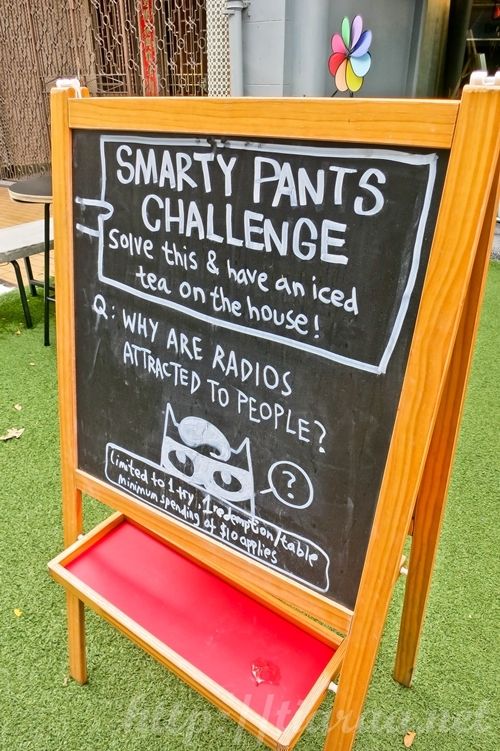 SMARTY PANTS
CHALLENGE
Solve this & have an iced
tea on the house!
Q: WHY ARE RADIOS
ATTRACTED TO PEOPLE?
?
Limited to 1 try, 1 redemption/table
minimum spending of $10 applies